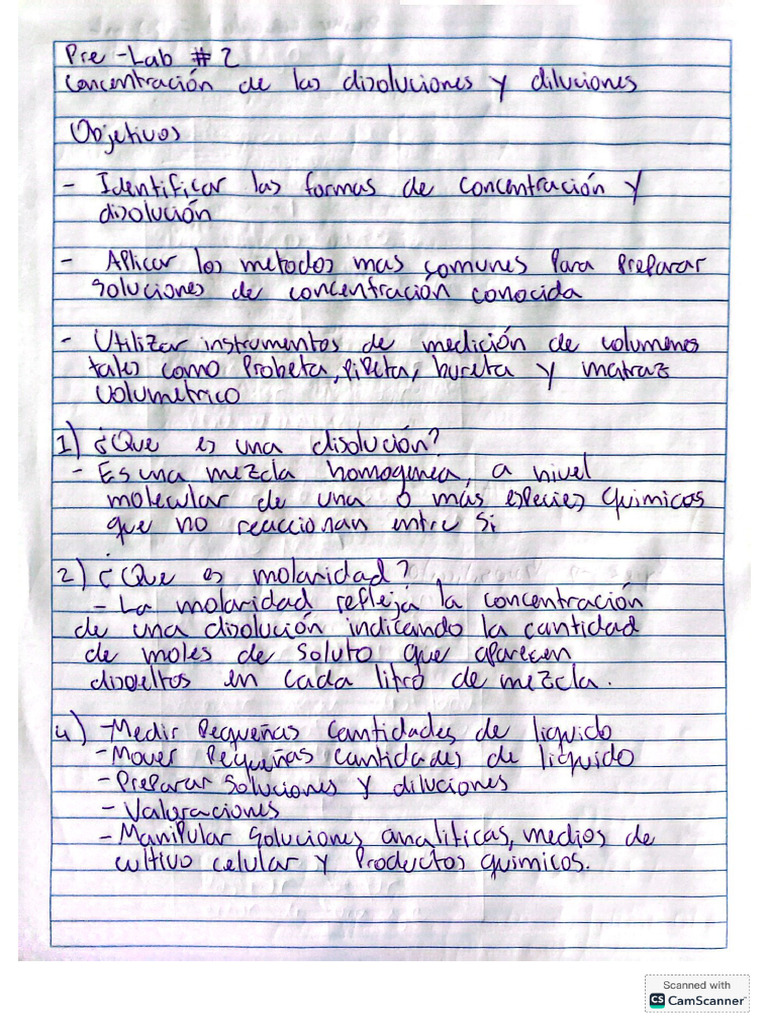 Pre-Lab # 2
Concentración de las disoluciones y diluciones
Objetivos
- Identificar las formas de concentración y
disolución
- Aplicar los metodos mas comunes para preparar
soluciones de concentración conocida
- Utilizar instrumentos de medición de volumenes
tales como Probeta, pipeta, bureta y matraz
volumetrico
1) ¿Que es una disolución?
- Es una mezcla homogenea, a nivel
molecular de una o más especies quimicas
que no reaccionan entre si
2) ¿Que es molaridad?
- La molaridad refleja la concentración
de una disolución indicando la cantidad
de moles de soluto que aparecen
disueltos en cada litro de mezcla.
4) - Medir pequeñas cantidades de liquido
- Mover pequeñas cantidades de liquido
- Preparar soluciones y diluciones
- Valoraciones
- Manipular soluciones analiticas, medios de
cultivo celular y productos quimicos.
Scanned with
CS CamScanner